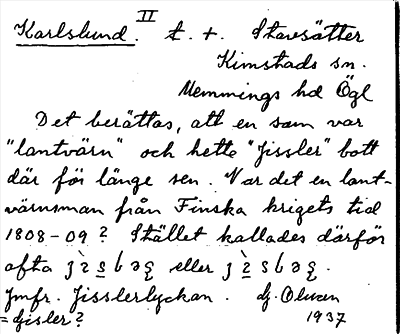 Karlslund. II t. +. Stavsätter
Kimstads sn.
Memmings hd Ögl
Det berättas, att en som var
"lantvärn" och hette "Jissler" bott
där för länge sen. Var det en lant-
värnsman från Finska krigets tid
1808-09? Stället kallades därför
ofta eller
Jmfr. Jisslerlyckan. Hj. Olwen
= Gisler? 1937